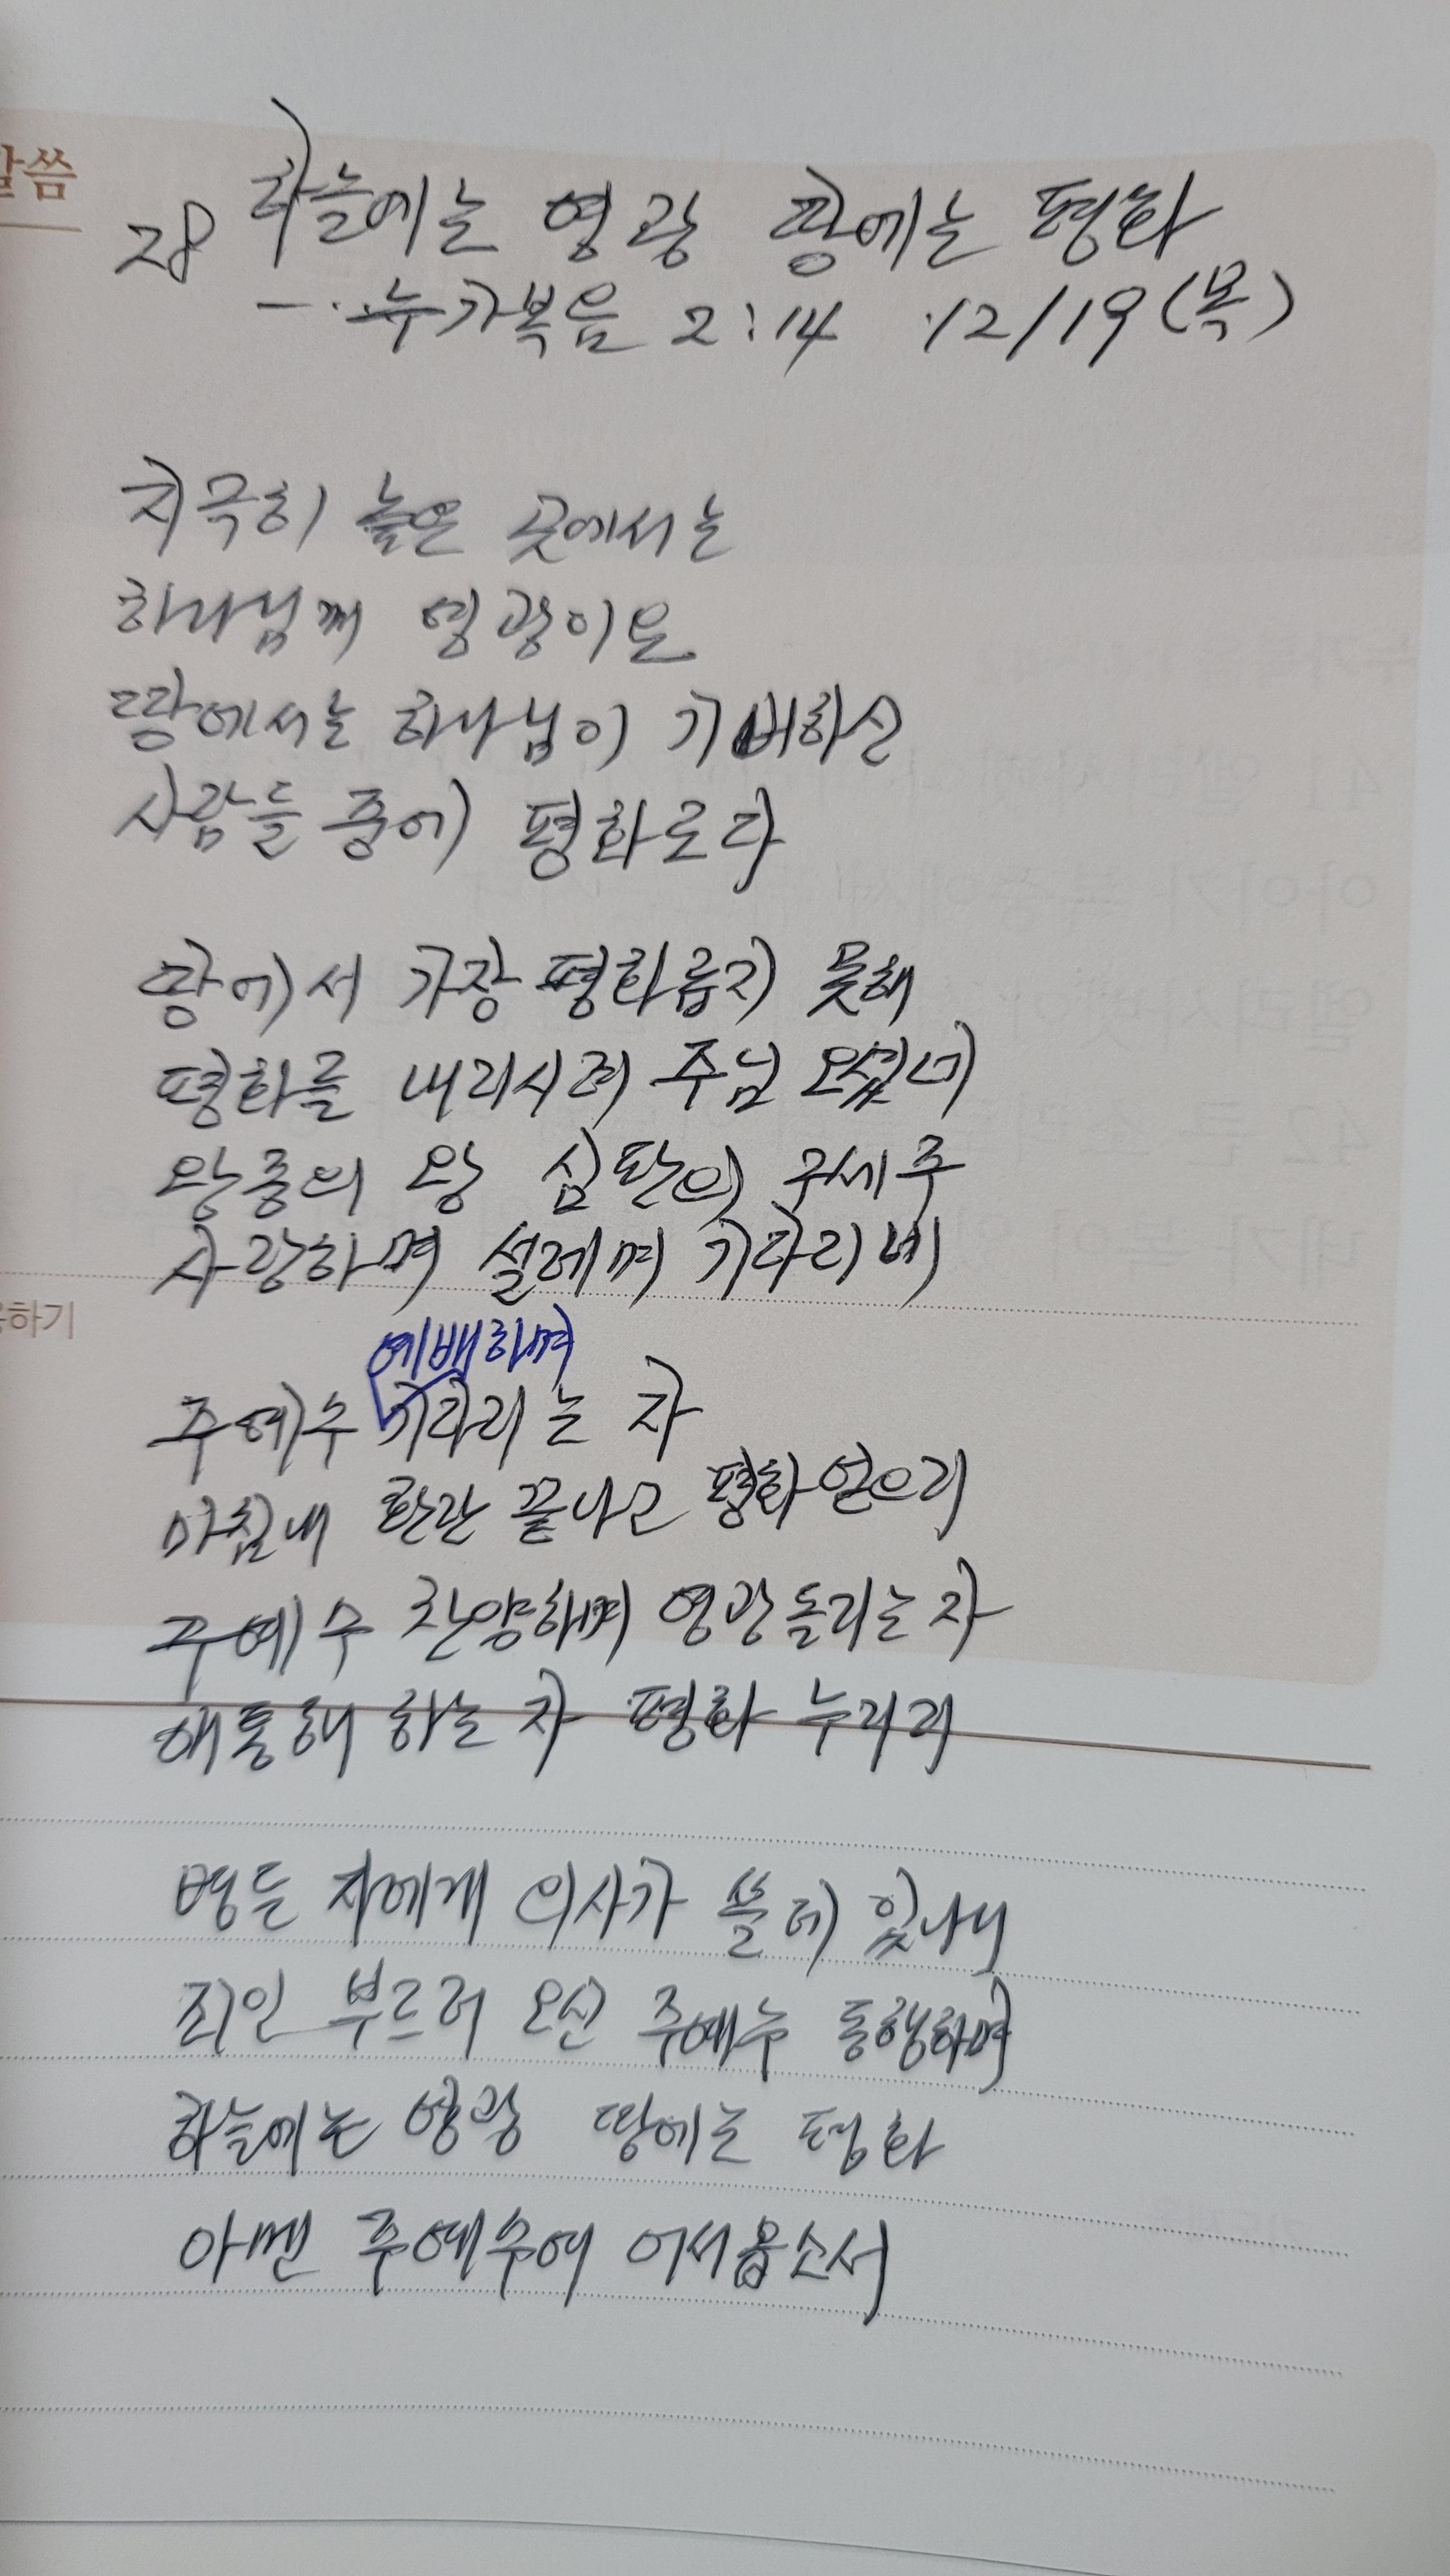 말씀
28 하늘에는 영광 땅에는 평화
-··누가복음 2:14 12/19(목)
지극히 높은 곳에서는
하나님께 영광이요
땅에서는 하나님이 기뻐하신
사람들 중에 평화로다
땅에서 가장 평화롭지 못해
평화를 내리시려 주님 오셨네
왕중의 왕 심판의 구세주
사랑하며 설레며 기다리네
하기
예배하며
주예수 기다리는 자
마침내 환란 끝나고 평화 얻으리
주예수 찬양하며 영광돌리는 자
애통해 하는 자 평화 누리리
병든 자에게 의사가 쓸데 있나니
죄인 부르러 오신 주예수 동행하며
하늘에는 영광 땅에는 평화
아멘 주예수여 어서옵소서